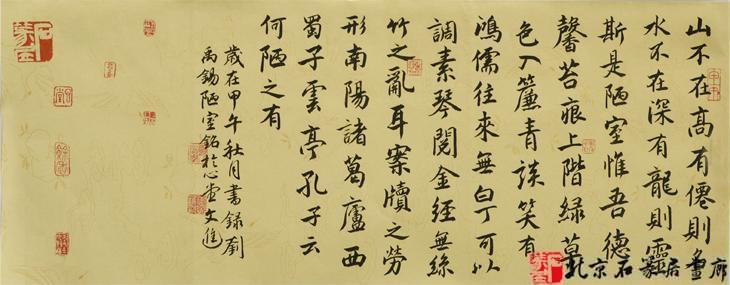 山不在高有僊則名
水不在深有龍則靈
斯是陋室惟吾德
馨苔痕上階綠草
色入簾青談笑有
鴻儒往來無白丁可以
調素琴閱金經無絲
竹之亂耳案牘之勞
形南陽諸葛廬西
蜀子雲亭孔子云
何陋之有
歲在甲午秋月書錄劉
禹錫陋室銘於心文進
北京石篆居畫廊